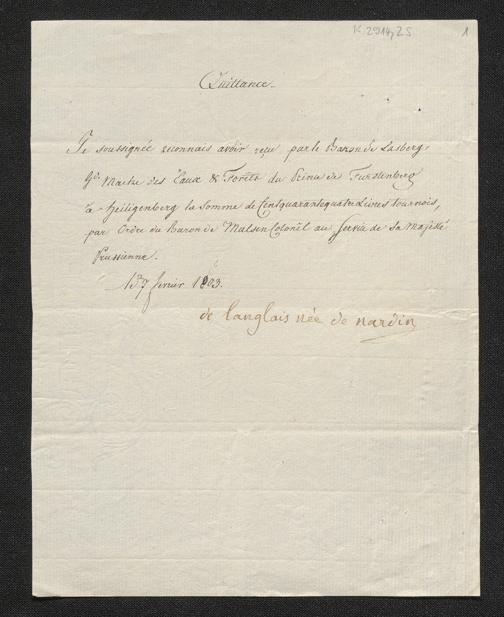 K 2914, Z S. 1
Quittance.
Je soussignée reconnais avoir reçu par le Baron de Lasberg,
Gd. Maitre des Eaux & Forêts du Prince de Furstenberg
à Heiligenberg la Somme de Centquarantequatre Livres tournois,
par Ordre du Baron de Malsen Colonel au Service de Sa Majesté
Prussienne.
fevrier 1803.
de Langlais née de nardin